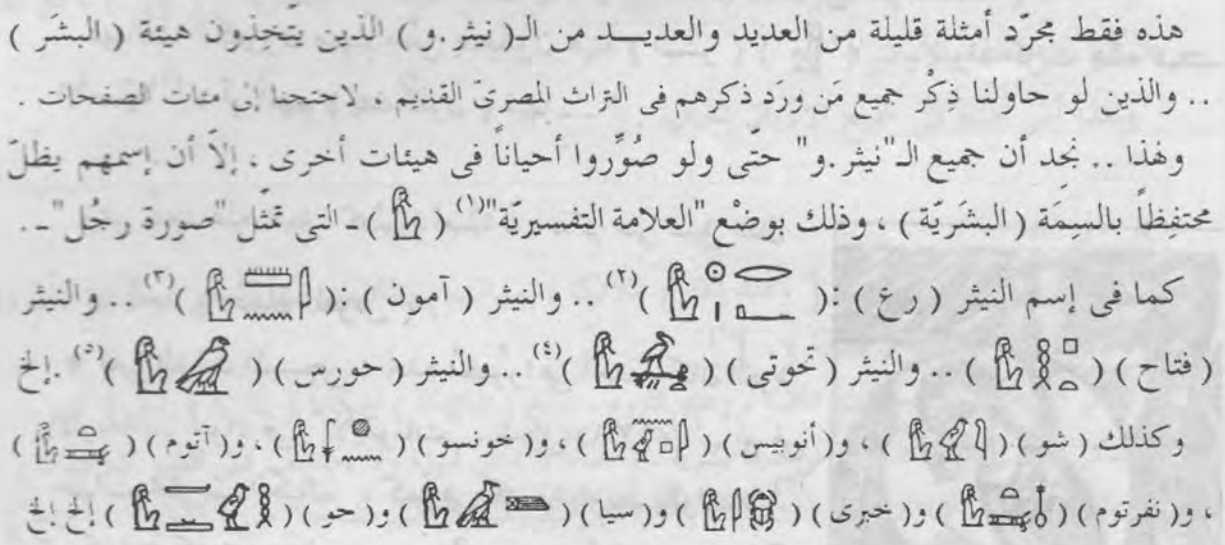 هذه فقط مجرّد أمثلة قليلة من العديد والعديــد من الـ( نيثر.و ) الذين يتّخِذون هيئة ( البشَر )
.. والذين لو حاولنا ذِكْر جميع مَن ورَد ذكرهم فى التراث المصرىّ القديم ، لاحتجنا إلى مئات الصفحات .
ولهذا .. نجد أن جميع الـ"نيثر.و" حتّى ولو صُوِّروا أحياناً فى هيئات أخرى ، إلاّ أن إسمهم يظلّ
محتفِظاً بالسِمَة ( البشَريّة ) ، وذلك بوضْع "العلامة التفسيريّة"(١) ( 𓁐 ) ـ التى تمّثل "صورة رجُل" ـ .
كما فى إسم النيثر ( رع ) :( )(٢) .. والنيثر ( آمون ) :( )(٣) .. والنيثر
( فتاح ) ( ) .. والنيثر ( تحوتى ) ( )(٤) .. والنيثر ( حورس ) ( )(٥) .إلخ
وكذلك ( شو ) ( ) ، و( أنوبيس ) ( ) ، و( خونسو ) ( ) ، و( آتوم ) ( )
، و( نفرتوم ) ( ) و( خبرى ) ( ) و( سيا ) ( ) و( حو ) ( ) إلخ إلخ